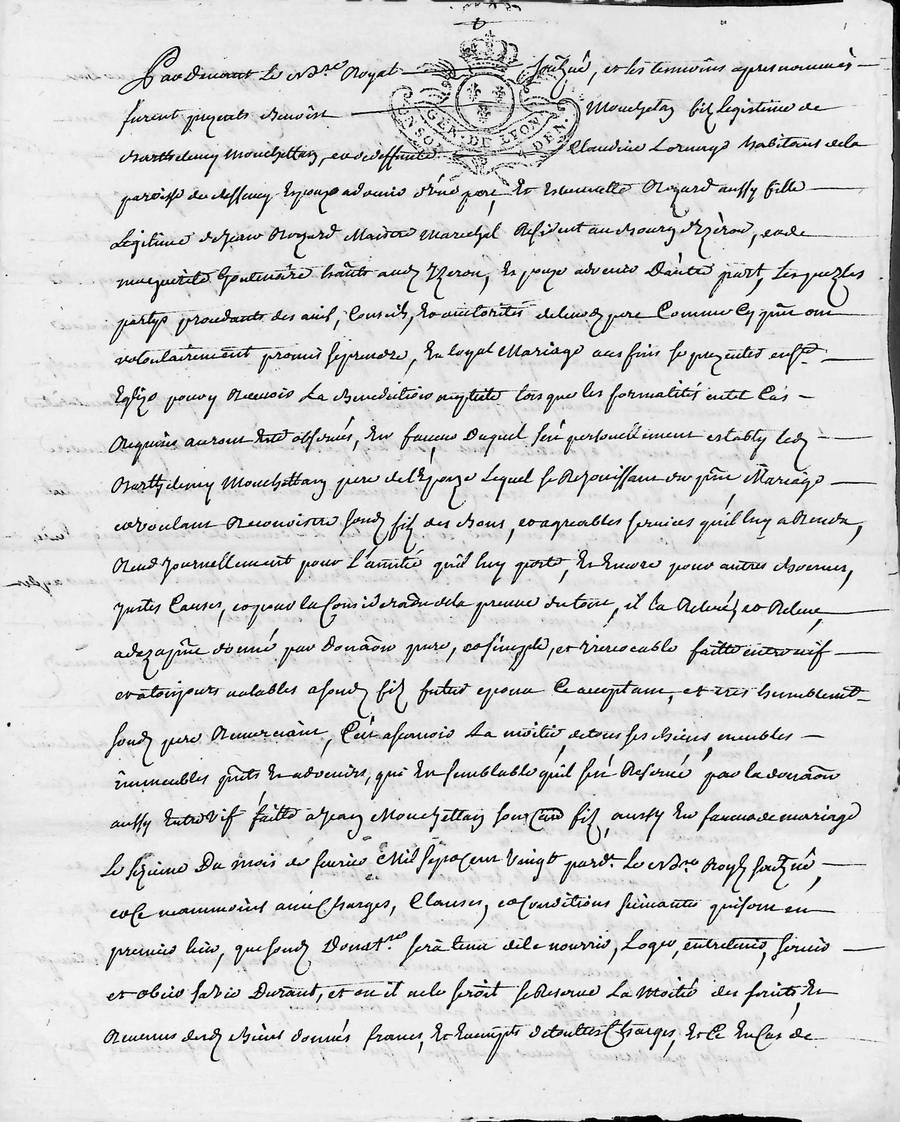 GEN. DE LYON
Pardevant le No.re Royal soubzné, et les temoins apres nommés
furent presents Benoist Mouchettan filz legitime de
Barthelemy Mouchettan, et de deffunte Claudine Habitans de la
paroisse de Messimy Espoux advenir d'une part, Et Estiennette Rozard aussy fille
Legitime de Jean Rozard Maistre Marechal Resident au Bourg d'Yzeron, et de
marguerite habts aud Yzeron, Espouze advenir D'autre part, Lesquelles
partyes procedants des avis, Conseils, et autorités de leurd pere Comme Cy ont
volontairement promis se prendre, En loyal Mariage aux fins se presenter en Ste
Eglize pour y Recevoir La Benediction nuptialle lors que les formalités en tel Cas
Requises auront Esté observés, En faveur Duquel s'est personellement estably led
Barthelemy Mouchettan pere de l'Epoux Lequel se Rejouissant du pnt Mariage
et voulant Reconoistre sond filz des Bons, et agreables services qu'il luy a Rendu,
Rend Journellement pour L'amitié qu'il luy porte, Et Encore pour autres Bonnes,
Justes Causes, et pour la Consideration de la preuve du tout, il l'a Relevé, et Releve,
a donné par donaon pure, et simple, et irrevocable faitte entre vif
et a toujours valables a sond filz futur epoux Ce acceptant, et tres humblement
sond pere Remerciant, C'est a scavoir La moitié, de tous ses biens meubles
immeubles pnts Et advenirs, qui En semblable qu'il s'est Reservé, par la donaon
aussy Entre vif faitte a Jean Mouchettan son filz, aussy En faveur de mariage
Le sezieme Du mois de fevrier Mil sept cent Vingt pard. Le No.re Royal soubzné,
et Ce neammoins aux Charges, Clauses, et Conditions suivantes qui sont en
premier lieu, que sond Donat.re sera tenu de le nourrir, Loger, entretenir, servir
et obeir sa vie Durant, et ou il ne le feroit se Reserve La Moitié des fruits, Et
Revenus desd Biens donnés francs, Et Exempts de toutes Charges, Et Ce En Cas de